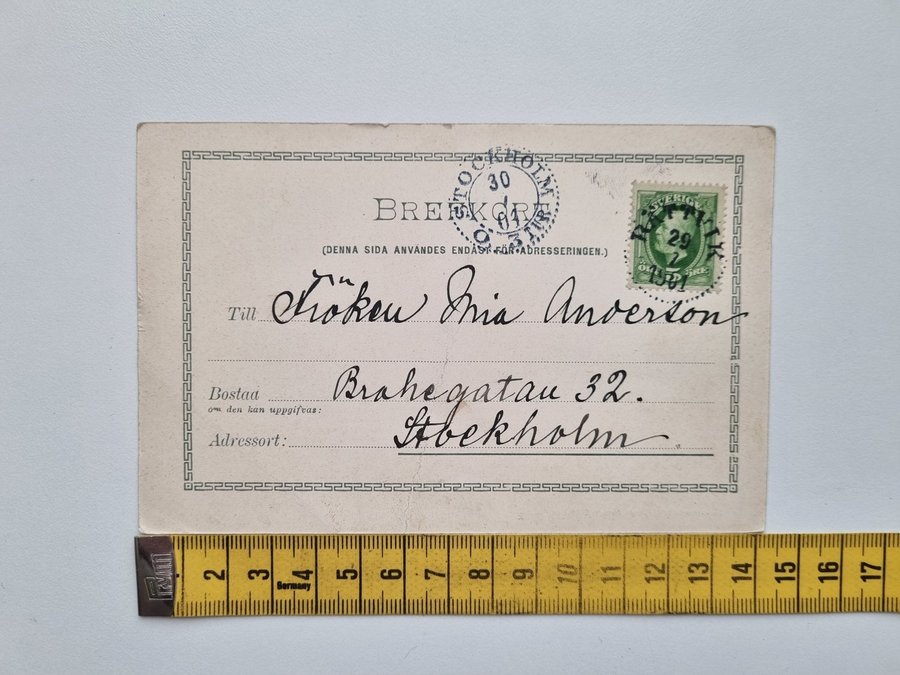 STOCKHOLM
30
1
01
3 TUR
Ö.
BREFKORT
(DENNA SIDA ANVÄNDES ENDAST FÖR ADRESSERINGEN.)
SVERIGE
RÄTTVIK
29
1
1901
ÖRE
Till Fröken Mia Anderson
Bostad Brahegatan 32.
om den kan uppgifvas:
Adressort: Stockholm
2 3 4 5 6 7 8 9 10 11 12 13 14 15 16 17
Germany